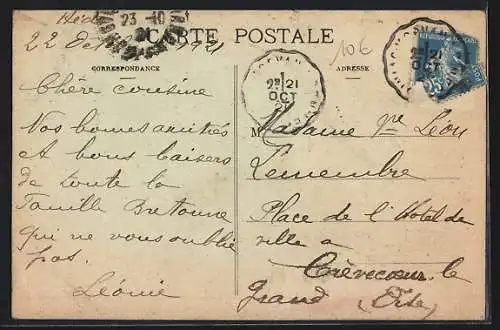 Héd
22 Oct 1921
23 -10
CARTE POSTALE
CORRESPONDANCE
ADRESSE
10€
21
OCT
21
OCT
25
Chère cousine
Nos bonnes amitiés
et bons baisers
de toute la
famille Bretonne
qui ne vous oublie
pas.
Léonie
Madame Vve Léon
Lemembre
Place de l'Hotel de
ville à
Crèvecoeur le
Grand (Oise)